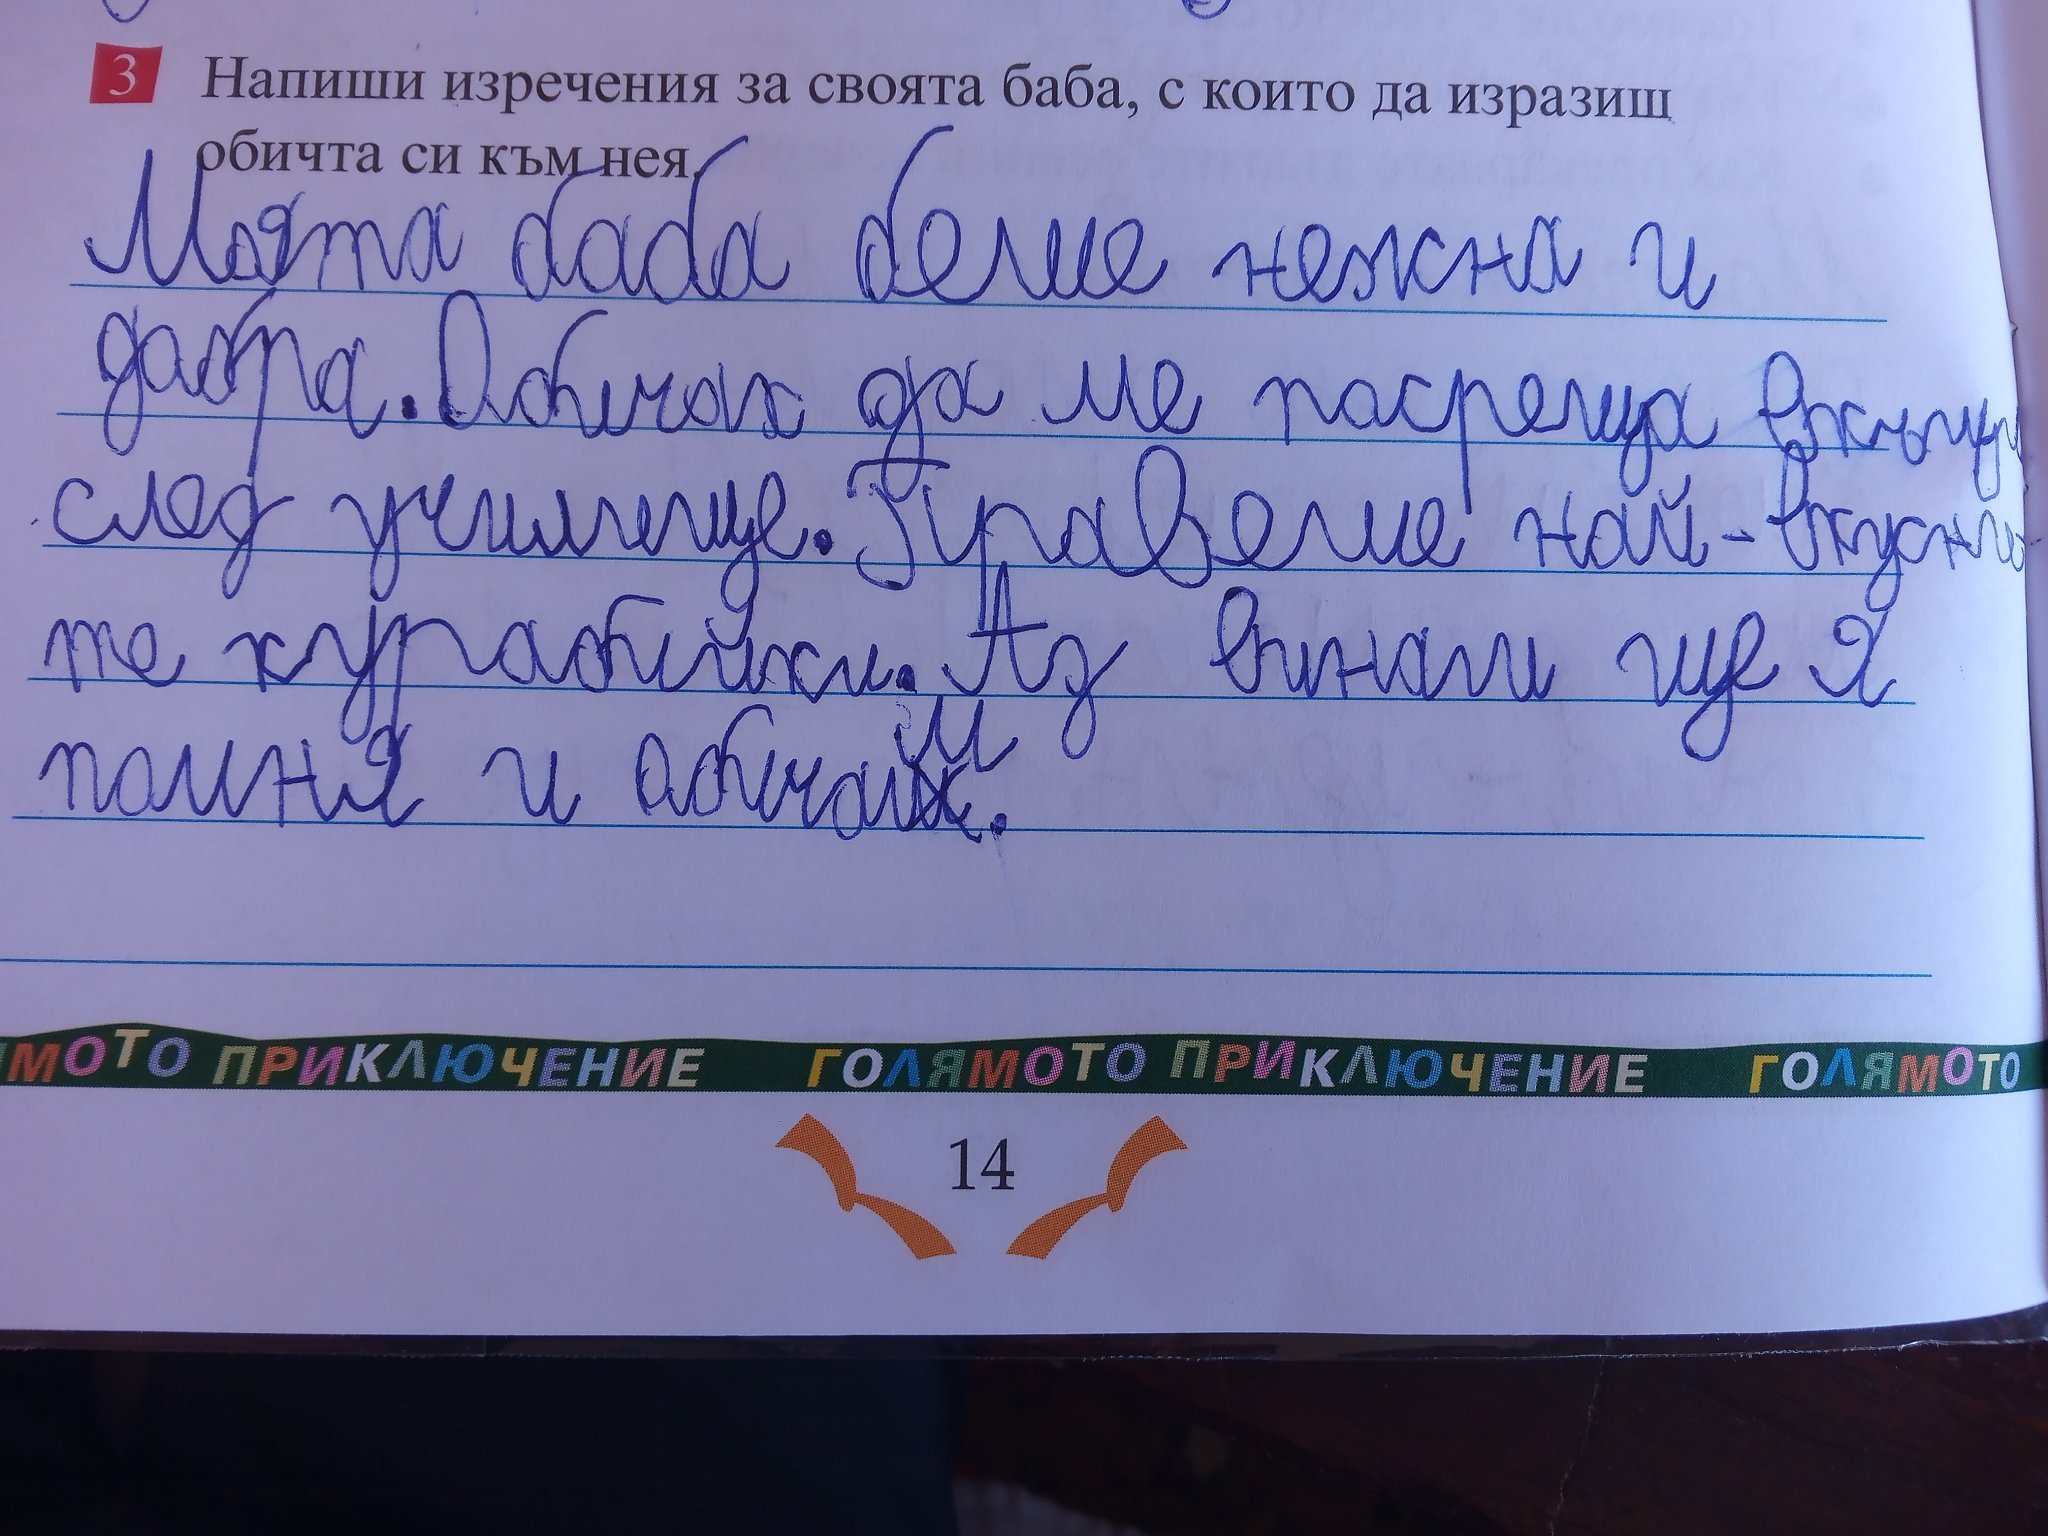 3 Напиши изречения за своята баба, с които да изразиш
обичта си към нея.
Моята баба беше нежна и
добра. Обичах да ме посреща вкъщи
след училище. Правеше най-вкусни
те курабийки. Аз винаги ще я
помня и обичам.
ЯМОТО ПРИКЛЮЧЕНИЕ ГОЛЯМОТО ПРИКЛЮЧЕНИЕ ГОЛЯМОТО
14